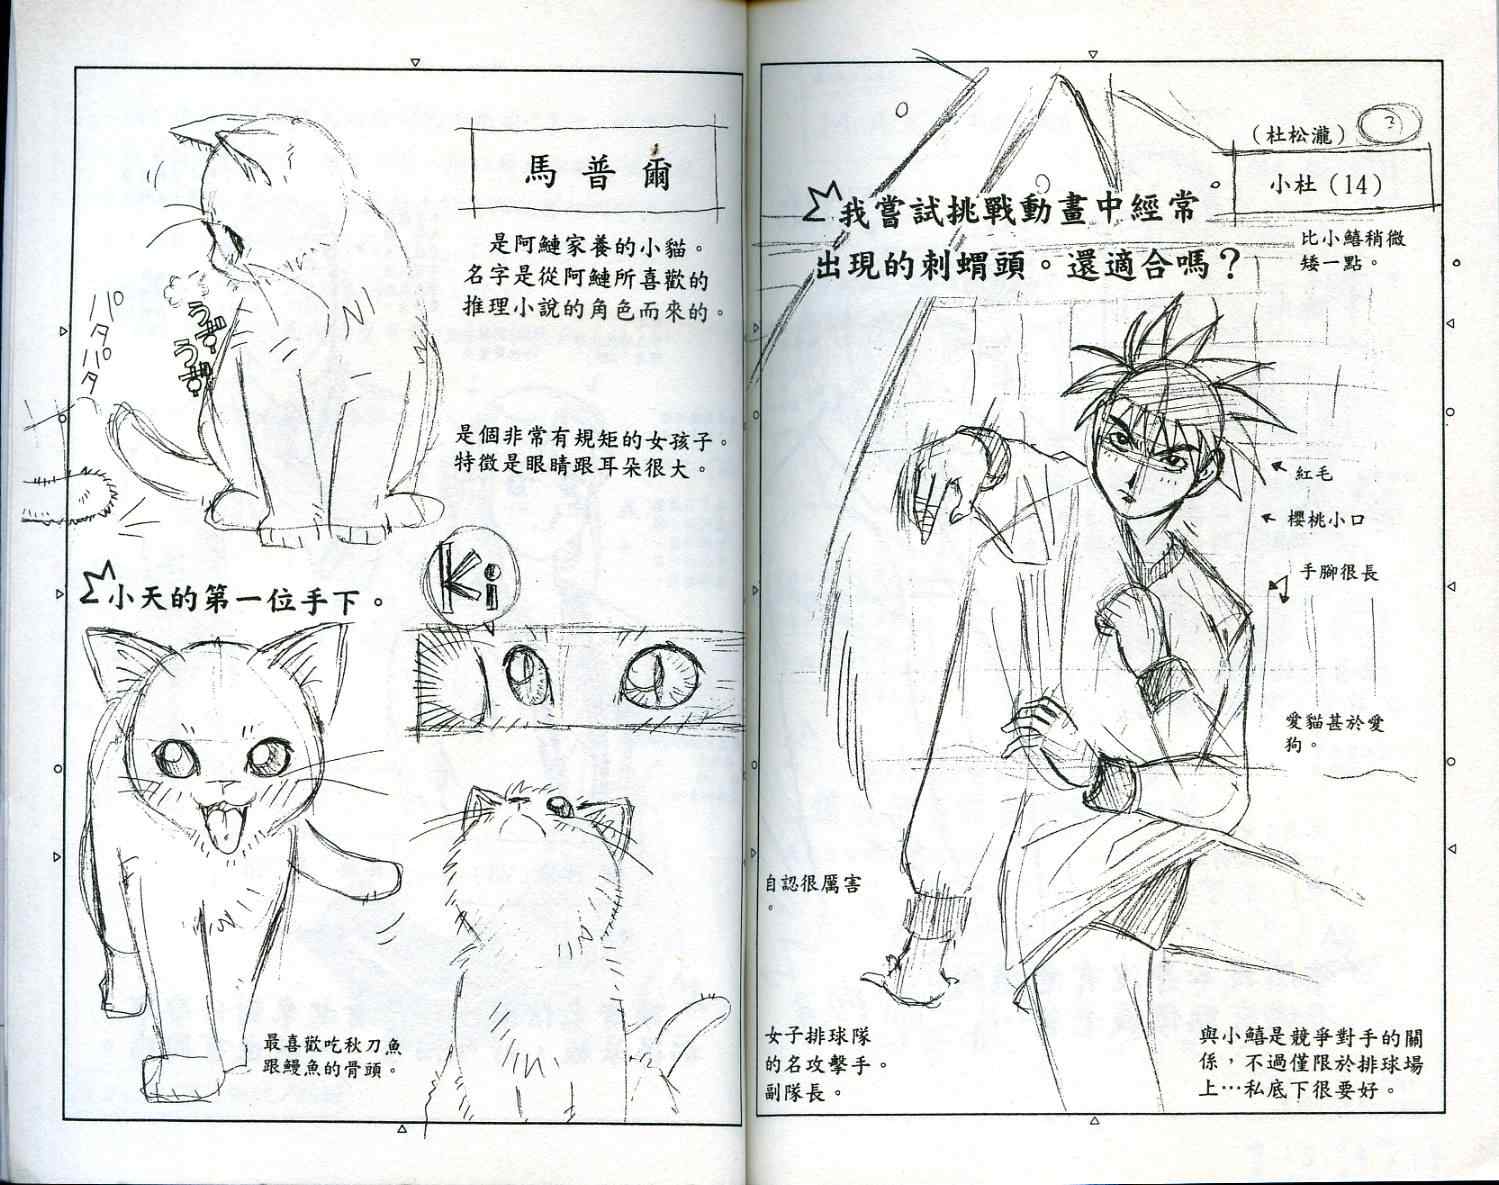 ③
（杜松瀧）
小杜（14）
我嘗試挑戰動畫中經常
出現的刺蝟頭。還適合嗎？
比小鱚稍微
矮一點。
紅毛
櫻桃小口
手腳很長
愛貓甚於愛
狗。
自認很厲害
。
女子排球隊
的名攻擊手。
副隊長。
與小鱚是競爭對手的關
係，不過僅限於排球場
上…私底下很要好。
馬普爾
是阿鰱家養的小貓。
名字是從阿鰱所喜歡的
推理小說的角色而來的。
パタパタ
うずうず
是個非常有規矩的女孩子。
特徵是眼睛跟耳朵很大。
小天的第一位手下。
Ki
最喜歡吃秋刀魚
跟鰻魚的骨頭。